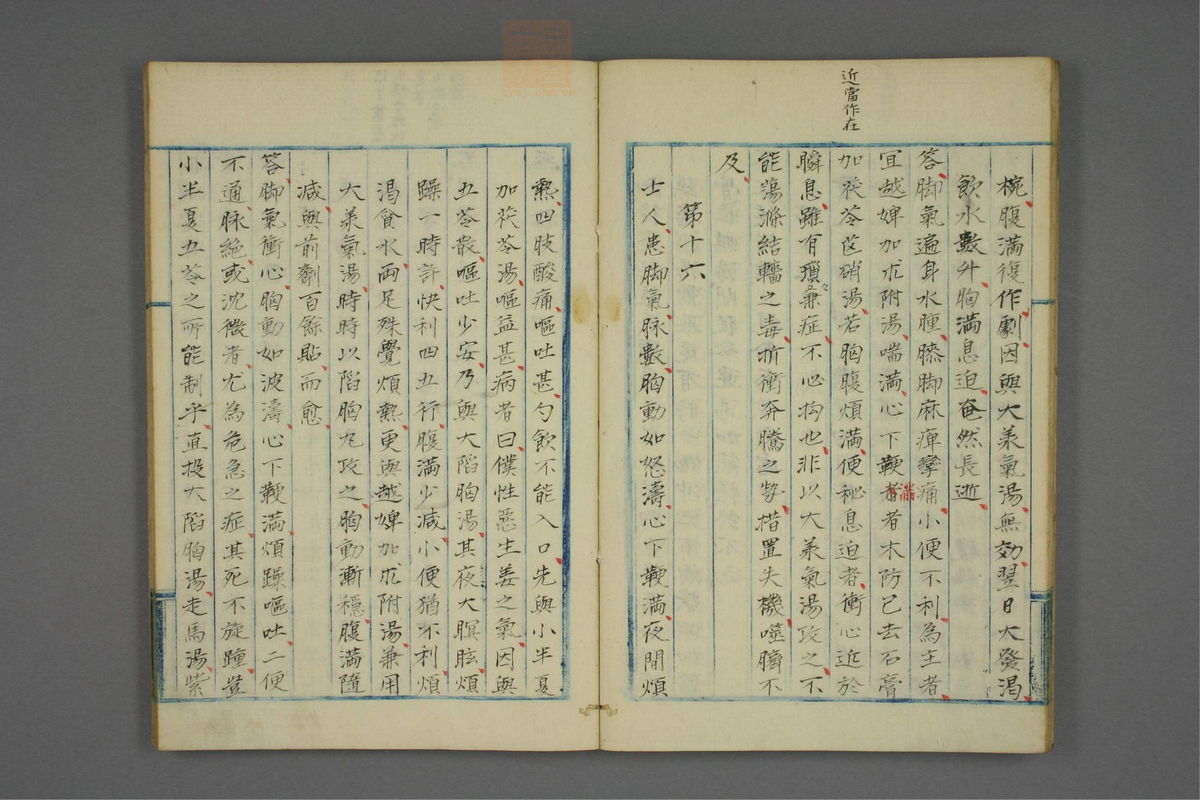 近當作在
椀腹滿復作劇因與大羕氣湯無効翌日大發渴
飲水數升胸滿息迫奄然長逝
答脚氣遍身水腫膝脚麻痺攣痛小便不利為主者
宜越婢加朮附湯喘滿心下鞕者者木防己去石膏
滿
加茯苓芒硝湯若胸腹煩滿便秘息迫者衝心近於
瞬息雖有兼症不必拘也非以大羕氣湯攻之不
能蕩滌結轖之毒折衝奔騰之勢措置失機噬臍不
及
第十六
士人患脚氣脉數胸動如怒濤心下鞕滿夜間煩
熱四肢酸痛嘔吐甚勺飲不能入口先與小半夏
加茯苓湯嘔益甚病者曰僕性惡生姜之氣因與
五苓散嘔吐少安乃與大陷胸湯其夜大瞑眩煩
躁一時許快利四五行腹滿少減小便猶不利煩
渴貪水兩足殊覺煩熱更與越婢加朮附湯兼用
大羕氣湯時時以陷胸丸攻之胸動漸穩腹滿隨
減與前劑百餘貼而愈
答脚氣衝心胸動如波濤心下鞕滿煩躁嘔吐二便
不通脉絶或沈微者尤為危急之症其死不旋踵豈
小半夏五苓之所能制乎直投大陷胸湯走馬湯紫